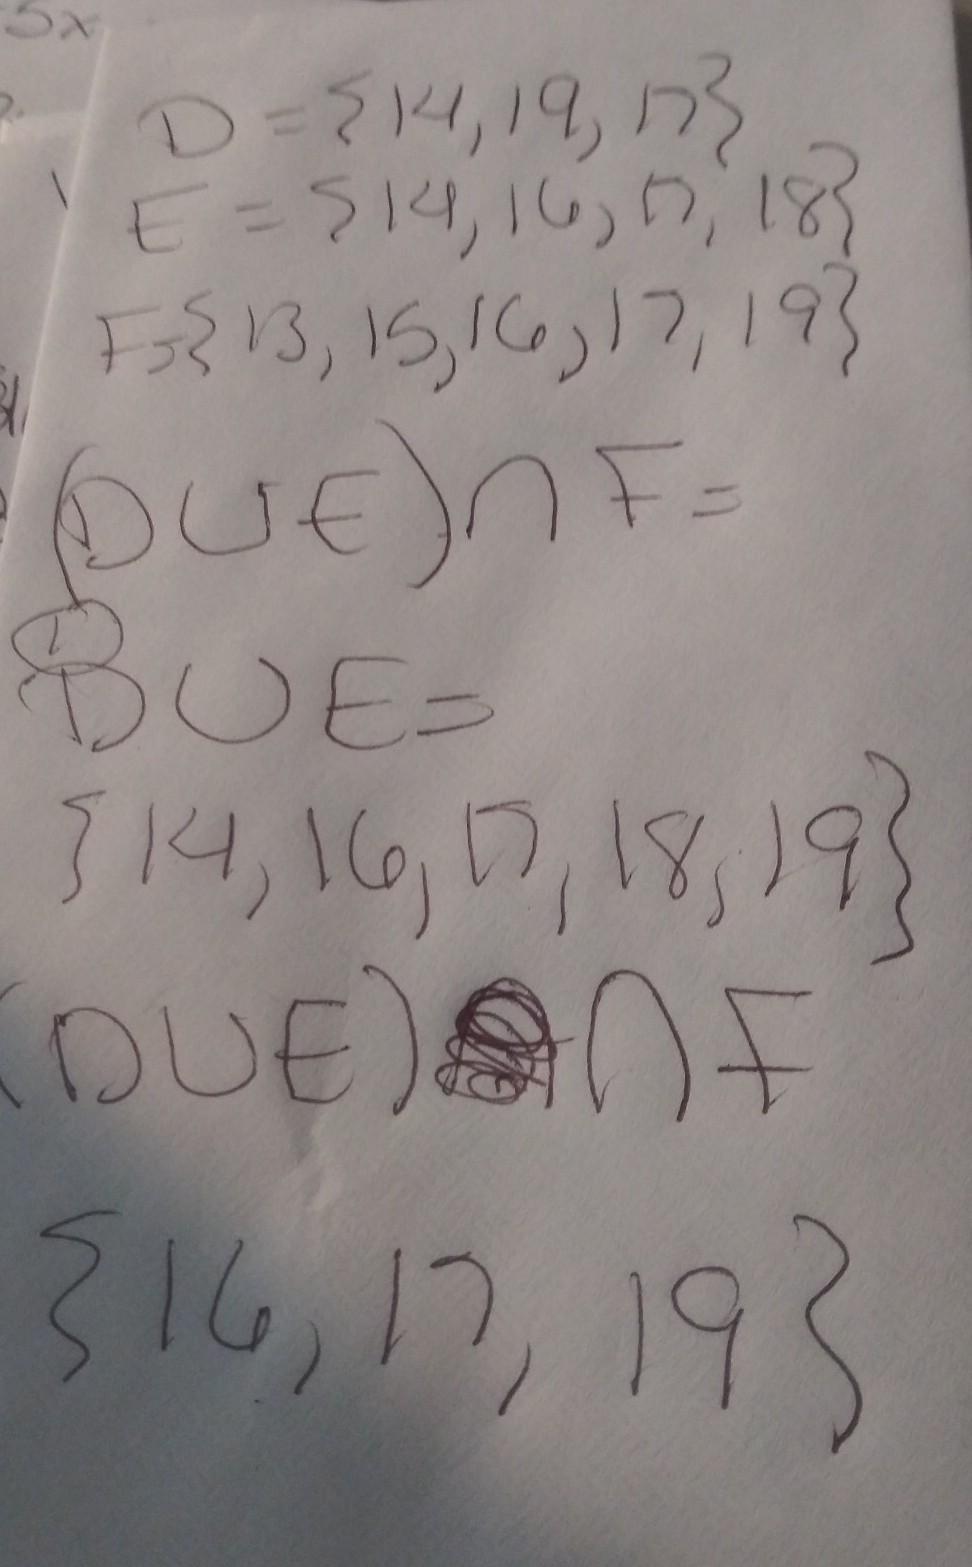 5x
D = {14, 19, 17}
E = {14, 16, 17, 18}
F={13, 15, 16, 17, 19}
(D∪E)∩F=
1
D∪E=
{14, 16, 17, 18, 19}
(D∪E)∩F
{16, 17, 19}